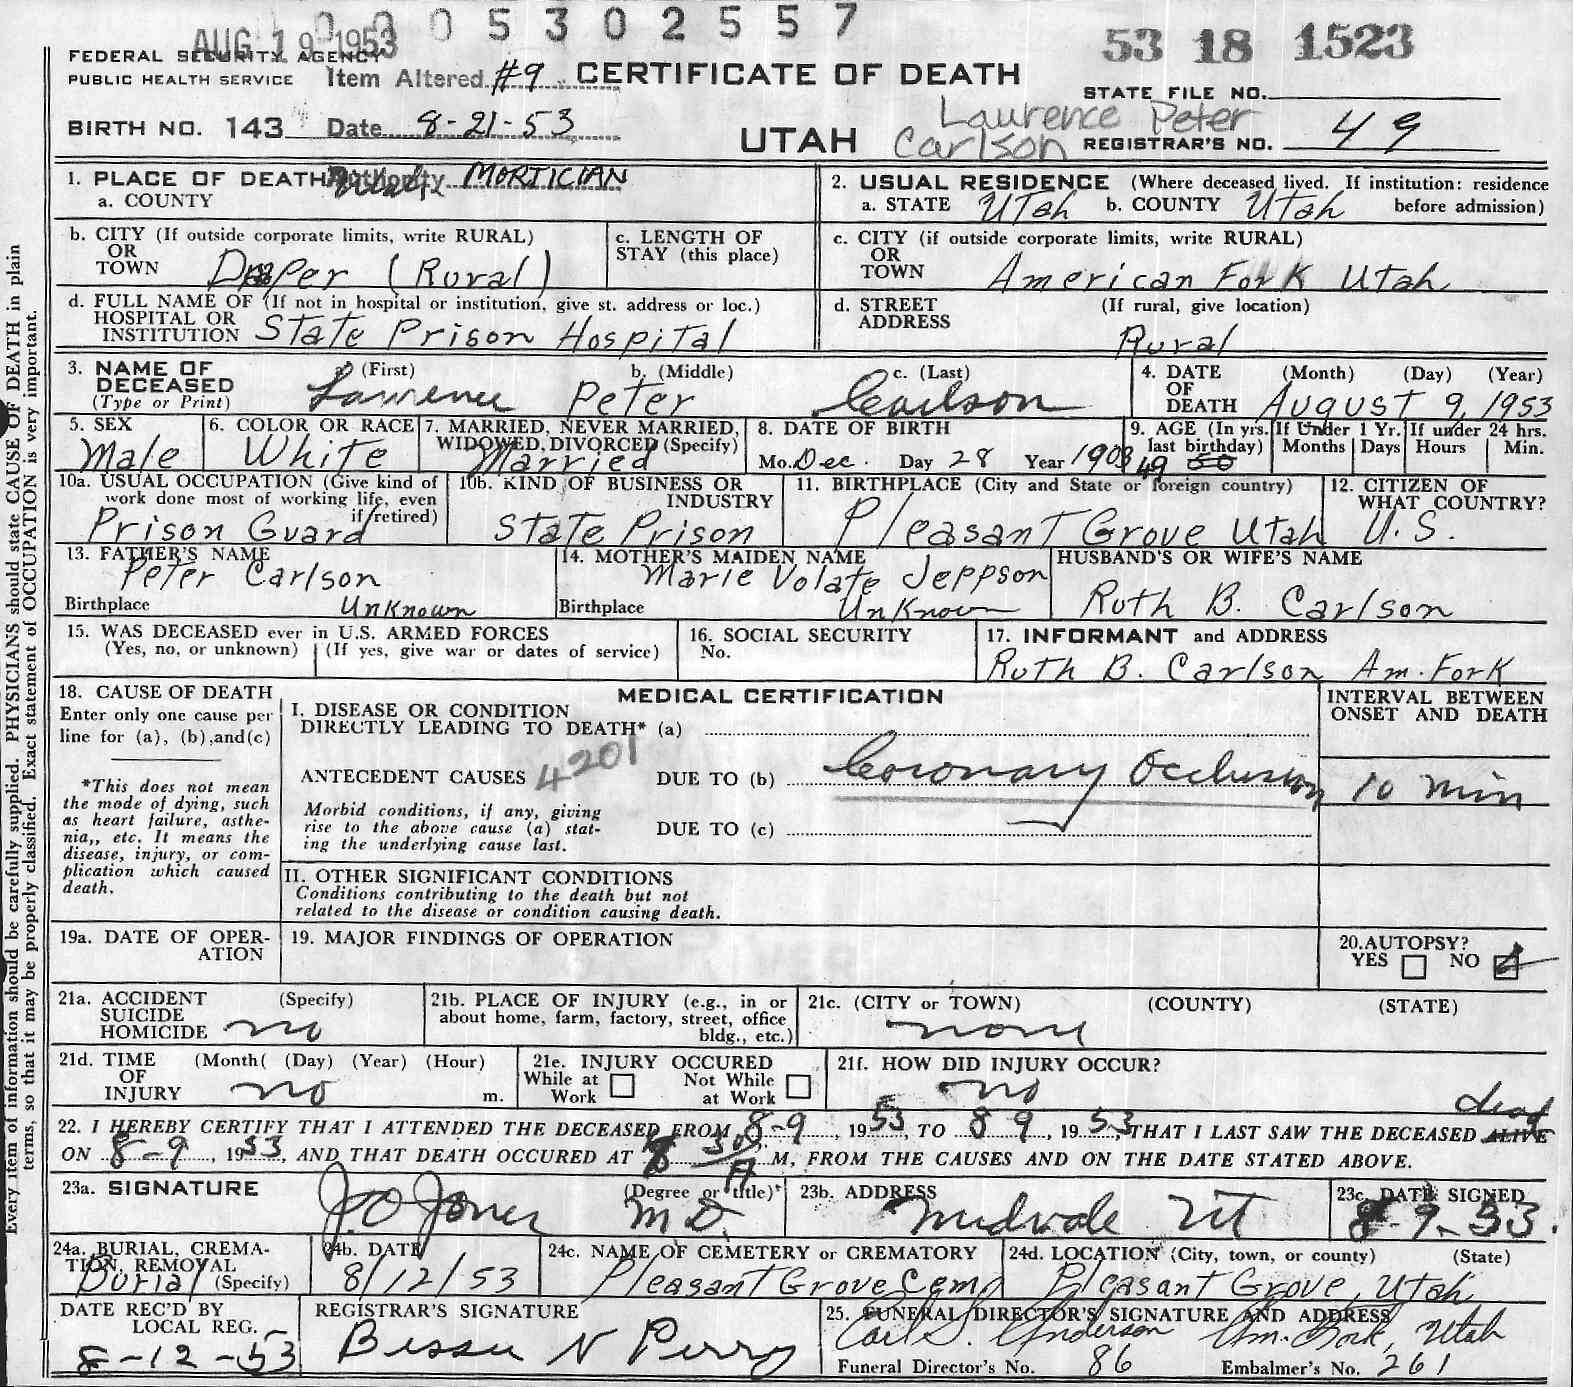 0 0 0 5 3 0 2 5 5 7
AUG 19 1953
53 18 1523
FEDERAL SECURITY AGENCY
PUBLIC HEALTH SERVICE
Item Altered #9
CERTIFICATE OF DEATH
STATE FILE NO.
BIRTH NO. 143
Date 8-21-53
UTAH
Lawrence Peter
Carlson
REGISTRAR'S NO. 49
1. PLACE OF DEATH
Authority MORTICIAN
a. COUNTY
2. USUAL RESIDENCE (Where deceased lived. If institution: residence
a. STATE Utah b. COUNTY Utah before admission)
b. CITY (If outside corporate limits, write RURAL)
OR
TOWN Draper (Rural)
c. LENGTH OF
STAY (this place)
c. CITY (if outside corporate limits, write RURAL)
OR
TOWN American Fork Utah
d. FULL NAME OF (If not in hospital or institution, give st. address or loc.)
HOSPITAL OR
INSTITUTION State Prison Hospital
d. STREET (If rural, give location)
ADDRESS
Rural
3. NAME OF
DECEASED
(Type or Print)
a. (First) b. (Middle) c. (Last)
Lawrence Peter Carlson
4. DATE (Month) (Day) (Year)
OF
DEATH August 9, 1953
5. SEX
Male
6. COLOR OR RACE
White
7. MARRIED, NEVER MARRIED,
WIDOWED, DIVORCED (Specify)
Married
8. DATE OF BIRTH
Mo. Dec. Day 28 Year 1903
9. AGE (In yrs.
last birthday)
49 50
If Under 1 Yr.
Months Days
If under 24 hrs.
Hours Min.
10a. USUAL OCCUPATION (Give kind of
work done most of working life, even
if retired)
Prison Guard
10b. KIND OF BUSINESS OR
INDUSTRY
State Prison
11. BIRTHPLACE (City and State or foreign country)
Pleasant Grove Utah
12. CITIZEN OF
WHAT COUNTRY?
U.S.
13. FATHER'S NAME
Peter Carlson
Birthplace Unknown
14. MOTHER'S MAIDEN NAME
Marie Volate Jeppson
Birthplace Unknown
HUSBAND'S OR WIFE'S NAME
Ruth B. Carlson
15. WAS DECEASED ever in U.S. ARMED FORCES
(Yes, no, or unknown) (If yes, give war or dates of service)
16. SOCIAL SECURITY
No.
17. INFORMANT and ADDRESS
Ruth B. Carlson Am. Fork
18. CAUSE OF DEATH
Enter only one cause per
line for (a), (b),and(c)
*This does not mean
the mode of dying, such
as heart failure, asthe-
nia,, etc. It means the
disease, injury, or com-
plication which caused
death.
MEDICAL CERTIFICATION
I. DISEASE OR CONDITION
DIRECTLY LEADING TO DEATH* (a)
ANTECEDENT CAUSES 4201
DUE TO (b) Coronary Occlusion
Morbid conditions, if any, giving
rise to the above cause (a) stat-
ing the underlying cause last.
DUE TO (c)
INTERVAL BETWEEN
ONSET AND DEATH
10 min
II. OTHER SIGNIFICANT CONDITIONS
Conditions contributing to the death but not
related to the disease or condition causing death.
19a. DATE OF OPER-
ATION
19. MAJOR FINDINGS OF OPERATION
20. AUTOPSY?
YES NO
21a. ACCIDENT (Specify)
SUICIDE
HOMICIDE no
21b. PLACE OF INJURY (e.g., in or
about home, farm, factory, street, office
bldg., etc.)
21c. (CITY or TOWN) (COUNTY) (STATE)
none
21d. TIME (Month( (Day) (Year) (Hour)
OF
INJURY no m.
21e. INJURY OCCURED
While at
Work
Not While
at Work
21f. HOW DID INJURY OCCUR?
no
dead
22. I HEREBY CERTIFY THAT I ATTENDED THE DECEASED FROM 8-9, 1953, TO 8 9, 1953, THAT I LAST SAW THE DECEASED ALIVE
ON 8-9, 1953, AND THAT DEATH OCCURED AT 8 30 A M, FROM THE CAUSES AND ON THE DATE STATED ABOVE.
23a. SIGNATURE (Degree or title)
J.O Jones M D.
23b. ADDRESS
Midvale Ut
23c. DATE SIGNED
8-9-53.
24a. BURIAL, CREMA-
TION, REMOVAL
Burial (Specify)
24b. DATE
8/12/53
24c. NAME OF CEMETERY or CREMATORY
Pleasant Grove Cem
24d. LOCATION (City, town, or county) (State)
Pleasant Grove, Utah
DATE REC'D BY
LOCAL REG.
8-12-53
REGISTRAR'S SIGNATURE
Bessie N Perry
25. FUNERAL DIRECTOR'S SIGNATURE AND ADDRESS
Carl S. Anderson Am. Fork, Utah
Funeral Director's No. 86 Embalmer's No. 261
Every item of information should be carefully supplied. PHYSICIANS should state CAUSE OF DEATH in plain
terms, so that it may be properly classified. Exact statement of OCCUPATION is very important.